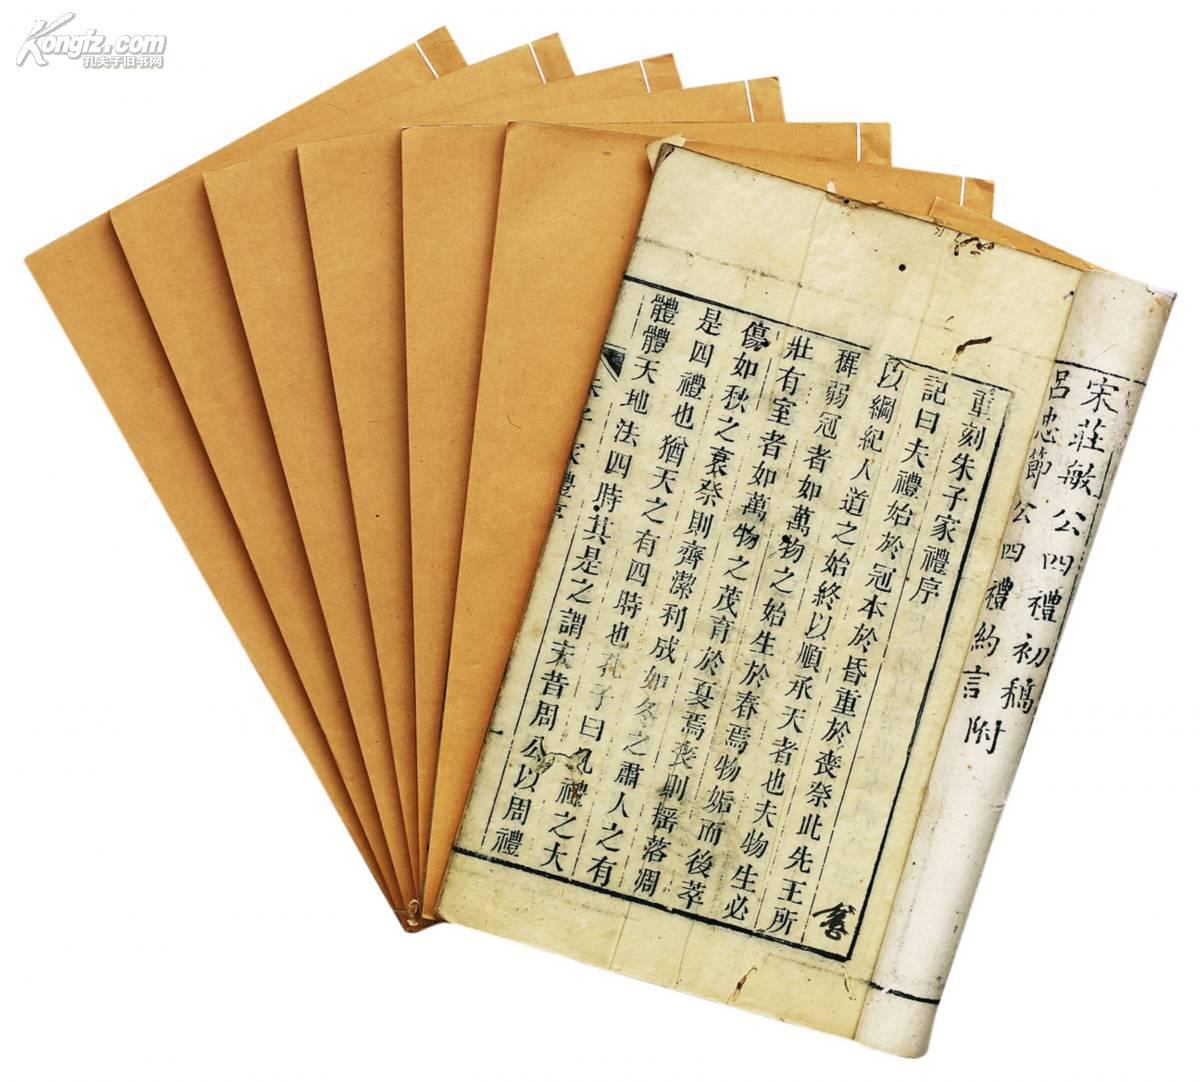 Kongfz.com
孔夫子旧书网
宋莊敏公四禮初稿
呂忠節公四禮約言附
重刻朱子家禮序
記曰夫禮始於冠本於昏重於喪祭此先王所
以綱紀人道之始終以順承天者也夫物生必
穉弱冠者如萬物之始生於春焉物姤而後萃
壯有室者如萬物之茂育於夏焉喪則揺落凋
傷如秋之衰祭則齊潔利成如冬之肅人之有
是四禮也猶天之有四時也孔子曰凡禮之大
體體天地法四時其是之謂昔周公以周禮
家禮
一